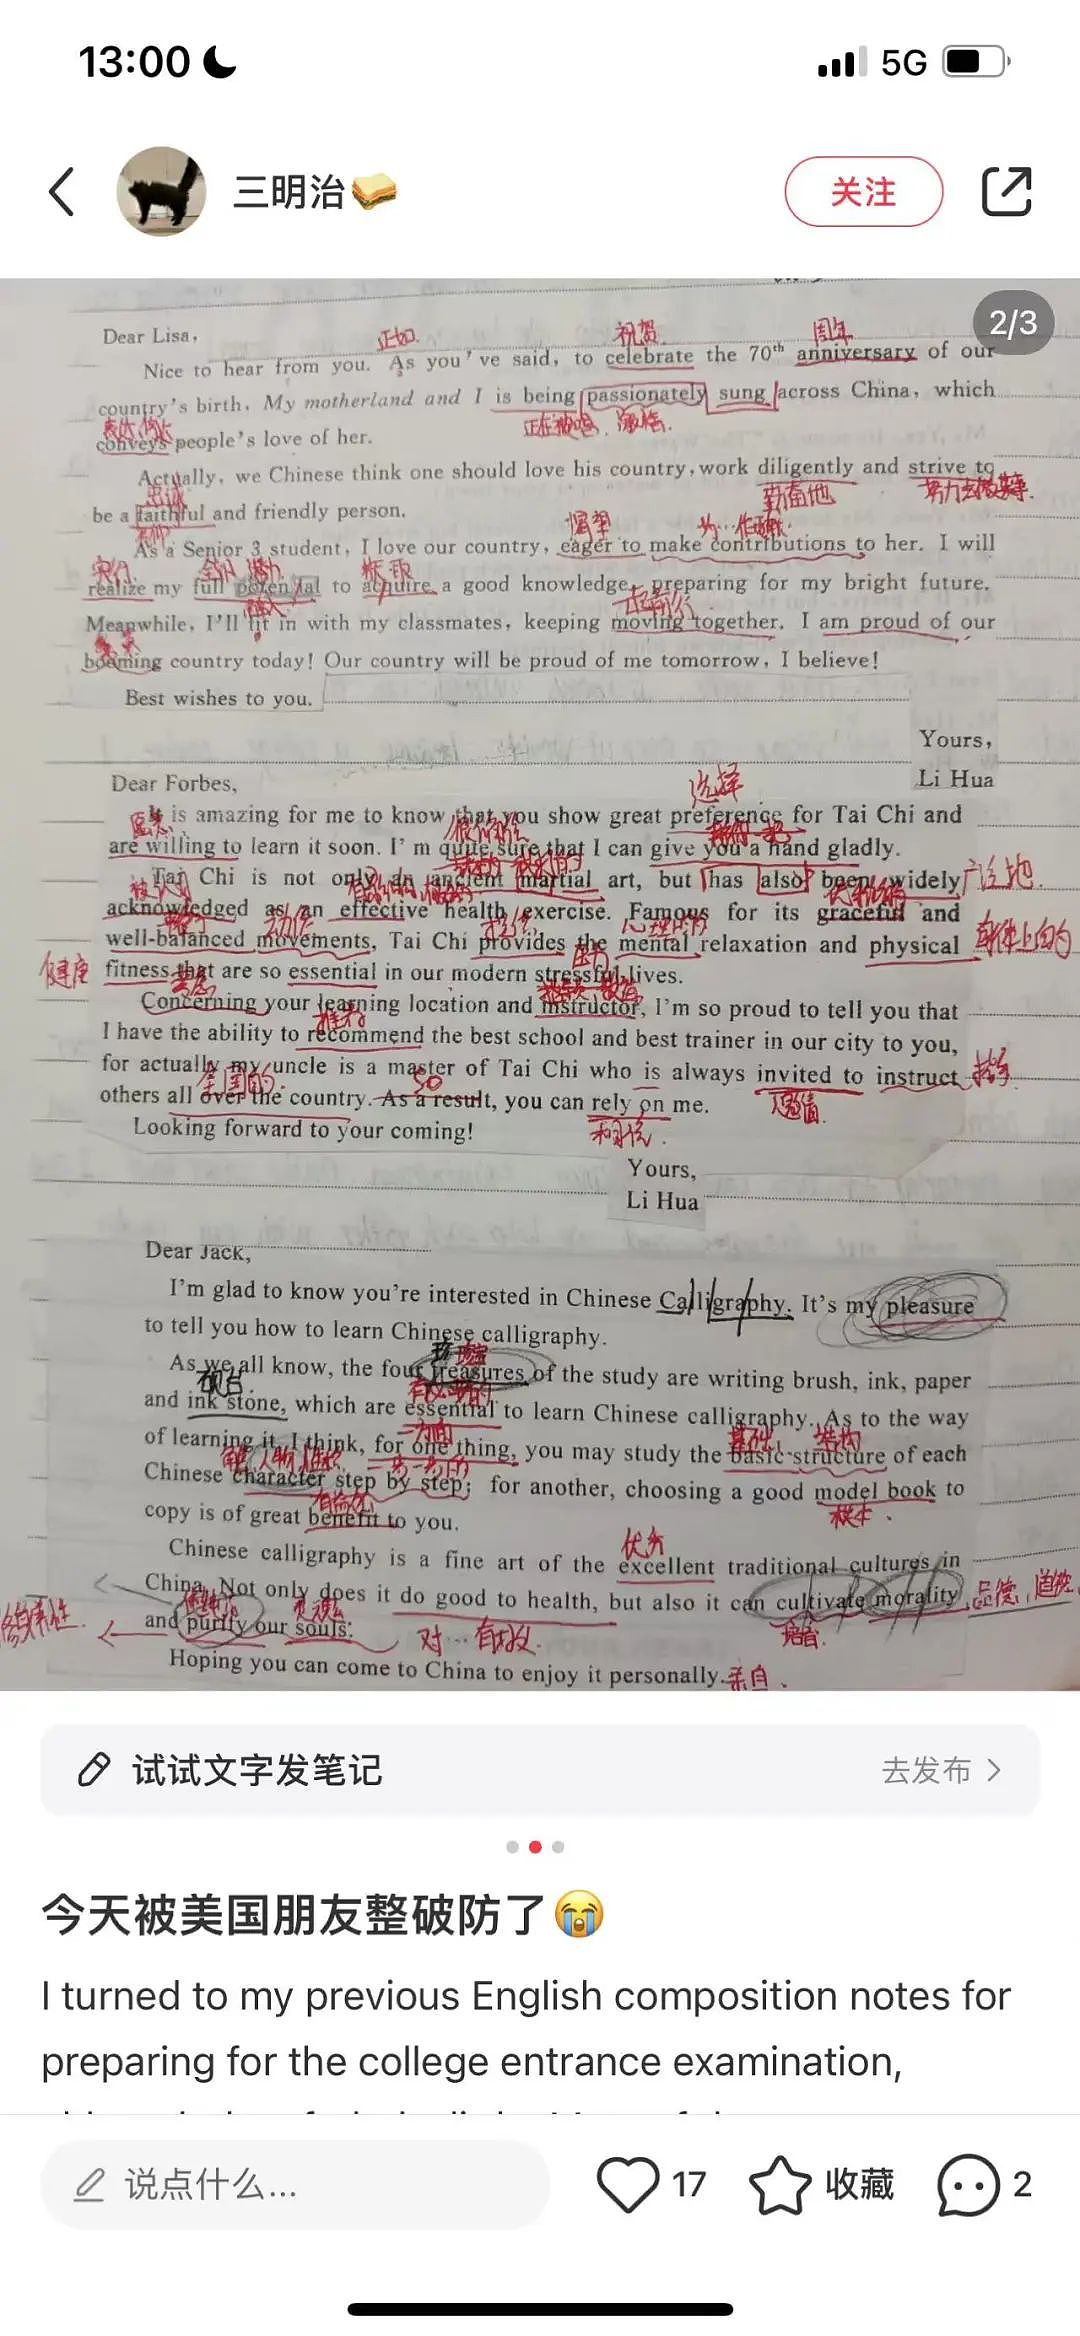 13:00
5G
三明治
关注
2/3
Dear Lisa,
正如. 祝贺 周年
Nice to hear from you. As you've said, to celebrate the 70th anniversary of our
country's birth, My motherland and I is being passionately sung across China, which
conveys people's love of her.
Actually, we Chinese think one should love his country, work diligently and strive to
勤奋地
be a faithful and friendly person.
忠诚
渴望
As a Senior 3 student, I love our country, eager to make contributions to her. I will
realize my full potential to acquire a good knowledge, preparing for my bright future.
Meanwhile, I'll fit in with my classmates, keeping moving together. I am proud of our
booming country today! Our country will be proud of me tomorrow, I believe!
Best wishes to you.
Yours,
Li Hua
Dear Forbes,
选择
It is amazing for me to know that you show great preference for Tai Chi and
are willing to learn it soon. I'm quite sure that I can give you a hand gladly.
Tai Chi is not only an ancient martial art, but has also been widely 广泛地.
acknowledged as an effective health exercise. Famous for its graceful and
well-balanced movements, Tai Chi provides the mental relaxation and physical 身体上的
健康 fitness that are so essential in our modern stressful lives.
Concerning your learning location and instructor, I'm so proud to tell you that
推荐
I have the ability to recommend the best school and best trainer in our city to you,
for actually my uncle is a master of Tai Chi who is always invited to instruct 指导
全国的. so
others all over the country. As a result, you can rely on me.
邀请.
Looking forward to your coming!
相信.
Yours,
Li Hua
Dear Jack,
I'm glad to know you're interested in Chinese Calligraphy. It's my pleasure
to tell you how to learn Chinese calligraphy.
As we all know, the four treasures of the study are writing brush, ink, paper
砚台.
and ink stone, which are essential to learn Chinese calligraphy. As to the way
一方面 基础 结构
of learning it, I think, for one thing, you may study the basic structure of each
一步一步的
Chinese character step by step; for another, choosing a good model book to
有益处
copy is of great benefit to you.
优秀
Chinese calligraphy is a fine art of the excellent traditional cultures in
China. Not only does it do good to health, but also it can cultivate morality 品德, 道德.
灵魂
and purify our souls.
对…有益. 培育.
Hoping you can come to China to enjoy it personally. 亲自.
试试文字发笔记
去发布
今天被美国朋友整破防了😭
I turned to my previous English composition notes for
preparing for the college entrance examination,
说点什么...
17
收藏
2